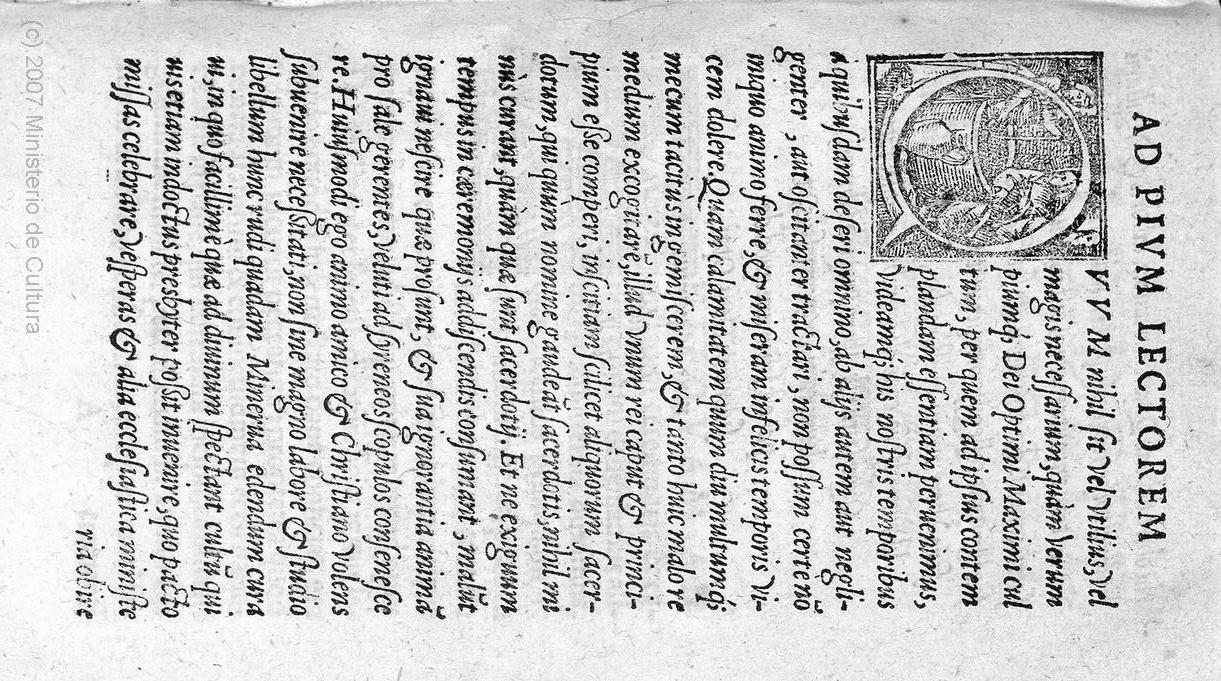 AD PIVM LECTOREM
QVVM nihil sit vel vtilius, vel
magis necessarium, quàm verum
piumq́; Dei Optimi Maximi cul
tum, per quem ad ipsius contem
plandam essentiam peruenimus,
videamq́; his nostris temporibus
a quibusdam deseri omnino, ab alijs autem aut negli-
genter, aut oscitanter tractari, non possum certe nõ
iniquo animo ferre, & miseram infelicis temporis vi-
cem dolere. Quam calamitatem quum diu multumq́;
mecum tacitus ingemiscerem, & tanto huic malo re
medium excogitare, illud vnum rei caput & princi-
pium esse comperi, inscitiam scilicet aliquorum sacer-
dotum, qui quum nomine gaudeãt sacerdotis, nihil mi
nùs curant, quàm quæ sunt sacerdotij. Et ne exiguum
tempus in cæremonijs addiscendis consumant, malũt
ignaui nescire quæ prosunt, & sua ignorantia animã
pro sale gerentes, veluti ad Syreneos scopulos consenesce
re. Huiusmodi ego animo amico & Christiano volens
subuenire necessitati, non sine magno labore & studio
libellum hunc rudi quadam Minerua edendum cura
ui, in quo facillimè quæ ad diuinum spectant cultũ qui
uis etiam indoctus presbyter possit inuenire, quo pacto
missas celebrare, vesperas & alia ecclesiastica ministe
ria obire
(c) 2007 Ministerio de Cultura